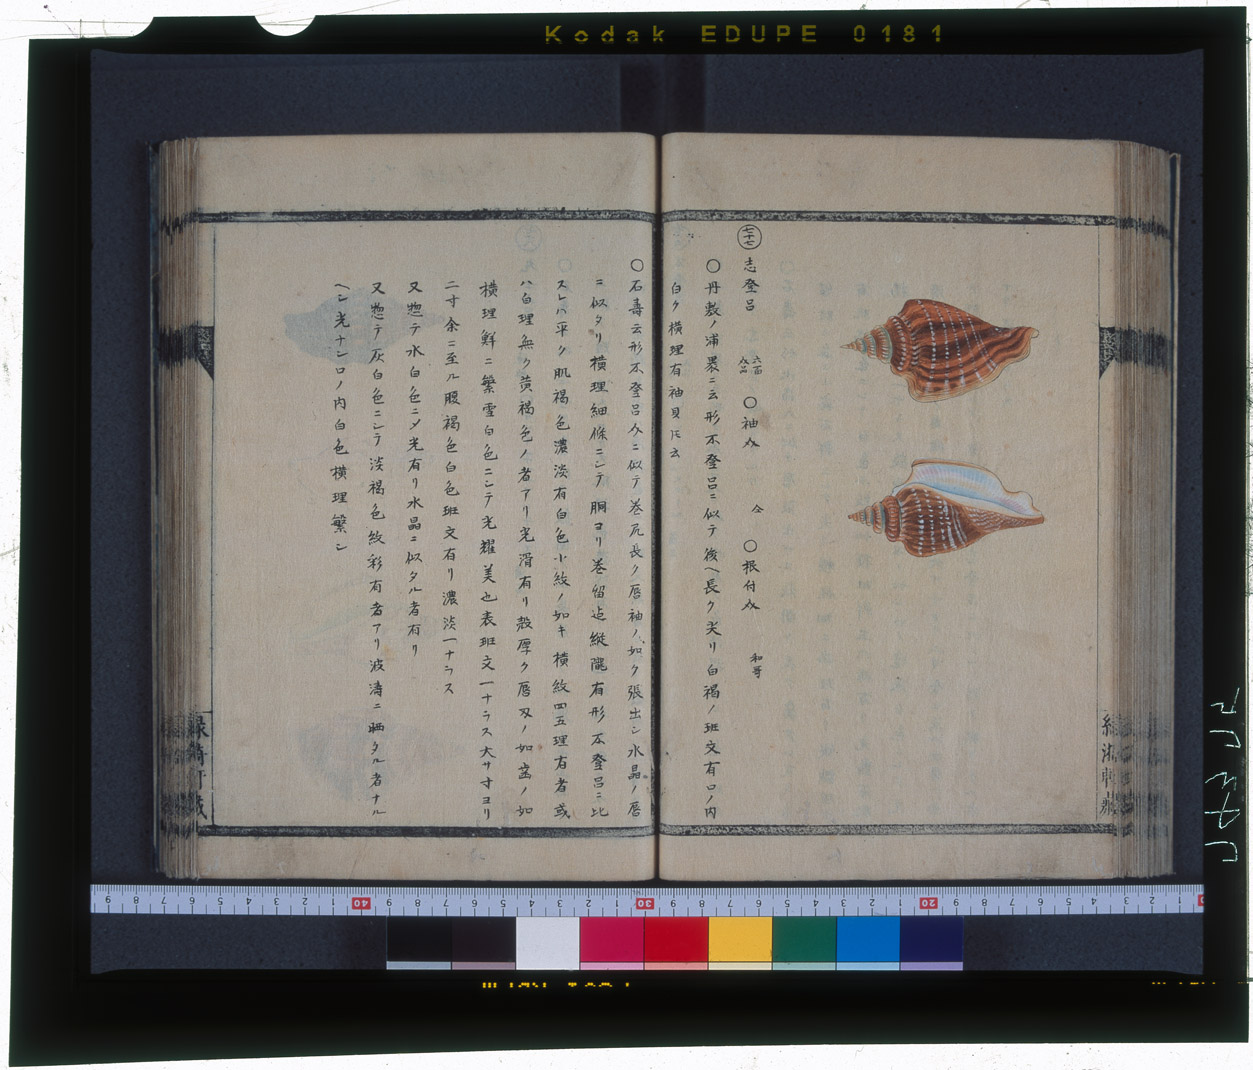 Kodak EDUPE 0181
七十七
志登呂 六百介品 ○袖介 仝 ○根付介 和哥
○丹敷ノ浦裏ニ云形不登呂ニ似テ後ヘ長ク尖リ白褐ノ班文有口ノ内
白ク横理有袖貝圧云
○石寿云形不登呂介ニ似テ巻尻長ク唇袖ノ如ク張出シ水晶ノ唇
ニ似タリ横理細條ニシテ胴ヨリ巻留迠縦隴有形不登呂ニ比
スレハ平ク肌褐色濃淡有白色小紋ノ如キ横紋四五理有者或
ハ白理無ク黄褐色ノ者アリ光滑有リ殻厚ク唇刄ノ如
横理鮮ニ繁雪白色ニシテ光耀美也表班文一ナラス大サ寸ヨリ
二寸余ニ至ル腹褐色白色班文有リ濃淡一ナラス
又惣テ水白色ニメ光有リ水晶ニ似タル者有リ
又惣テ灰白色ニシテ淡褐色紋彩有者アリ波濤ニ晒タル者ナル
ヘシ光ナシ口ノ内白色横理繁シ
40
30
20